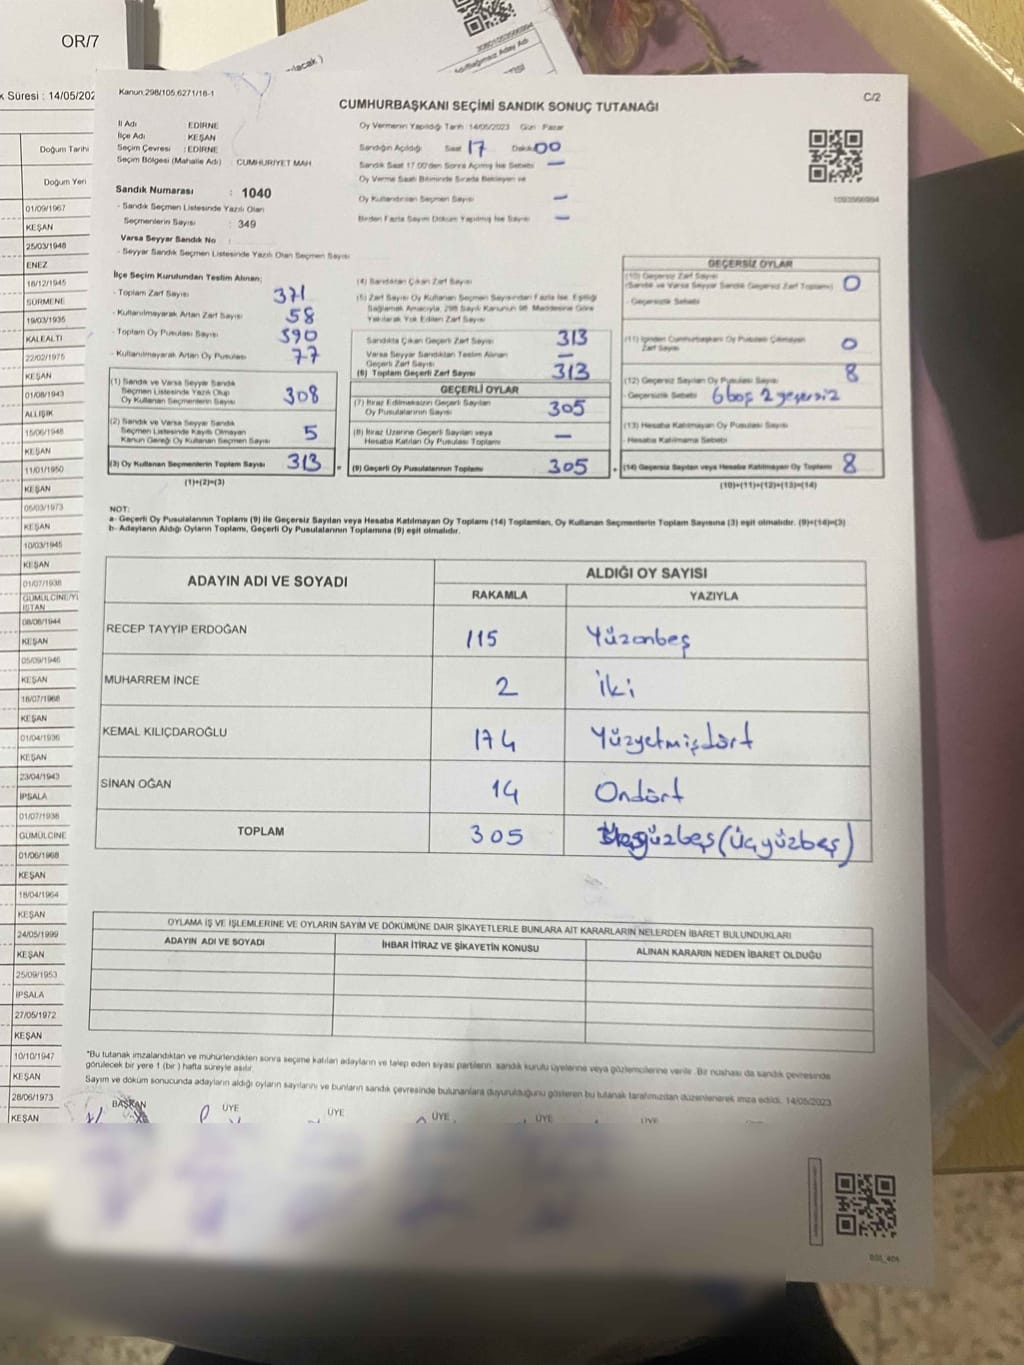 OR/7
Süresi : 14/05/202
Doğum Tarihi
Doğum Yeri
01/09/1967
KEŞAN
25/03/1948
ENEZ
16/12/1945
SÜRMENE
19/03/1935
KALEALTI
22/02/1975
KEŞAN
01/08/1943
ALLIŞIK
15/06/1948
KEŞAN
11/01/1950
KEŞAN
05/03/1973
KEŞAN
10/03/1945
KEŞAN
01/07/1938
GÜMÜLCİNE/Yİ
İSTAN
08/08/1944
KEŞAN
05/09/1946
KEŞAN
18/07/1968
KEŞAN
01/04/1936
KEŞAN
23/04/1943
İPSALA
01/07/1938
GÜMÜLCİNE
01/06/1968
KEŞAN
18/04/1964
KEŞAN
24/05/1999
KEŞAN
25/09/1953
İPSALA
27/05/1972
KEŞAN
10/10/1947
KEŞAN
28/06/1973
KEŞAN
Kanun.298/105,6271/16-1
CUMHURBAŞKANI SEÇİMİ SANDIK SONUÇ TUTANAĞI
C/2
İl Adı EDİRNE
İlçe Adı KEŞAN
Seçim Çevresi : EDİRNE
Seçim Bölgesi (Mahalle Adı) : CUMHURİYET MAH
Sandık Numarası : 1040
- Sandık Seçmen Listesinde Yazılı Olan
Seçmenlerin Sayısı : 349
Varsa Seyyar Sandık No
- Seyyar Sandık Seçmen Listesinde Yazılı Olan Seçmen Sayısı
Oy Vermenin Yapıldığı Tarih :14/05/2023 Gün Pazar
Sandığın Açıldığı Saat 17 Dakika 00
Sandık Saat 17.00'den Sonra Açılmış İse Sebebi —
Oy Verme Saati Bitiminde Sırada Bekleyen ve
Oy Kullandırılan Seçmen Sayısı —
Birden Fazla Sayım Döküm Yapılmış İse Sayısı —
İlçe Seçim Kurulundan Teslim Alınan;
- Toplam Zarf Sayısı 371
- Kullanılmayarak Artan Zarf Sayısı 58
- Toplam Oy Pusulası Sayısı 390
- Kullanılmayarak Artan Oy Pusulası 77
(1) Sandık ve Varsa Seyyar Sandık
Seçmen Listesinde Yazılı Olup
Oy Kullanan Seçmenlerin Sayısı 308
(2) Sandık ve Varsa Seyyar Sandık
Seçmen Listesinde Kayıtlı Olmayan
Kanun Gereği Oy Kullanan Seçmen Sayısı 5
(3) Oy Kullanan Seçmenlerin Toplam Sayısı 313
(1)+(2)=(3)
(4) Sandıktan Çıkan Zarf Sayısı
(5) Zarf Sayısı Oy Kullanan Seçmen Sayısından Fazla İse, Eşitliği
Sağlamak Amacıyla, 298 Sayılı Kanunun 98. Maddesine Göre
Yakılarak Yok Edilen Zarf Sayısı
Sandıkta Çıkan Geçerli Zarf Sayısı 313
Varsa Seyyar Sandıktan Teslim Alınan
Geçerli Zarf Sayısı —
(6) Toplam Geçerli Zarf Sayısı 313
GEÇERLİ OYLAR
(7) İtiraz Edilmeksizin Geçerli Sayılan
Oy Pusulalarının Sayısı 305
(8) İtiraz Üzerine Geçerli Sayılan veya
Hesaba Katılan Oy Pusulası Toplamı —
(9) Geçerli Oy Pusulalarının Toplamı 305
GEÇERSİZ OYLAR
(10) Geçersiz Zarf Sayısı
(Sandık ve Varsa Seyyar Sandık Geçersiz Zarf Toplamı) 0
- Geçersizlik Sebebi
(11) İçinden Cumhurbaşkanı Oy Pusulası Çıkmayan
Zarf Sayısı 0
(12) Geçersiz Sayılan Oy Pusulası Sayısı 8
- Geçersizlik Sebebi 6 boş 2 geçersiz
(13) Hesaba Katılmayan Oy Pusulası Sayısı
- Hesaba Katılmama Sebebi
(14) Geçersiz Sayılan veya Hesaba Katılmayan Oy Toplamı 8
(10)+(11)+(12)+(13)=(14)
NOT:
a- Geçerli Oy Pusulalarının Toplamı (9) ile Geçersiz Sayılan veya Hesaba Katılmayan Oy Toplamı (14) Toplamları, Oy Kullanan Seçmenlerin Toplam Sayısına (3) eşit olmalıdır. (9)+(14)=(3)
b- Adayların Aldığı Oyların Toplamı, Geçerli Oy Pusulalarının Toplamına (9) eşit olmalıdır.
ADAYIN ADI VE SOYADI
ALDIĞI OY SAYISI
RAKAMLA
YAZIYLA
RECEP TAYYİP ERDOĞAN 115 Yüzonbeş
MUHARREM İNCE 2 İki
KEMAL KILIÇDAROĞLU 174 Yüzyetmişdört
SİNAN OĞAN 14 Ondört
TOPLAM 305 (Üçyüzbeş)
OYLAMA İŞ VE İŞLEMLERİNE VE OYLARIN SAYIM VE DÖKÜMÜNE DAİR ŞİKAYETLERLE BUNLARA AİT KARARLARIN NELERDEN İBARET BULUNDUKLARI
ADAYIN ADI VE SOYADI
İHBAR İTİRAZ VE ŞİKAYETİN KONUSU
ALINAN KARARIN NEDEN İBARET OLDUĞU
"Bu tutanak imzalandıktan ve mühürlendikten sonra seçime katılan adayların ve talep eden siyasi partilerin sandık kurulu üyelerine veya gözlemcilerine verilir. Bir nüshası da sandık çevresinde
görülecek bir yere 1 (bir ) hafta süreyle asılır.
Sayım ve döküm sonucunda adayların aldığı oyların sayılarını ve bunların sandık çevresinde bulunanlara duyurulduğunu gösteren bu tutanak tarafımızdan düzenlenerek imza edildi. 14/05/2023
BAŞKAN ÜYE ÜYE ÜYE ÜYE ÜYE